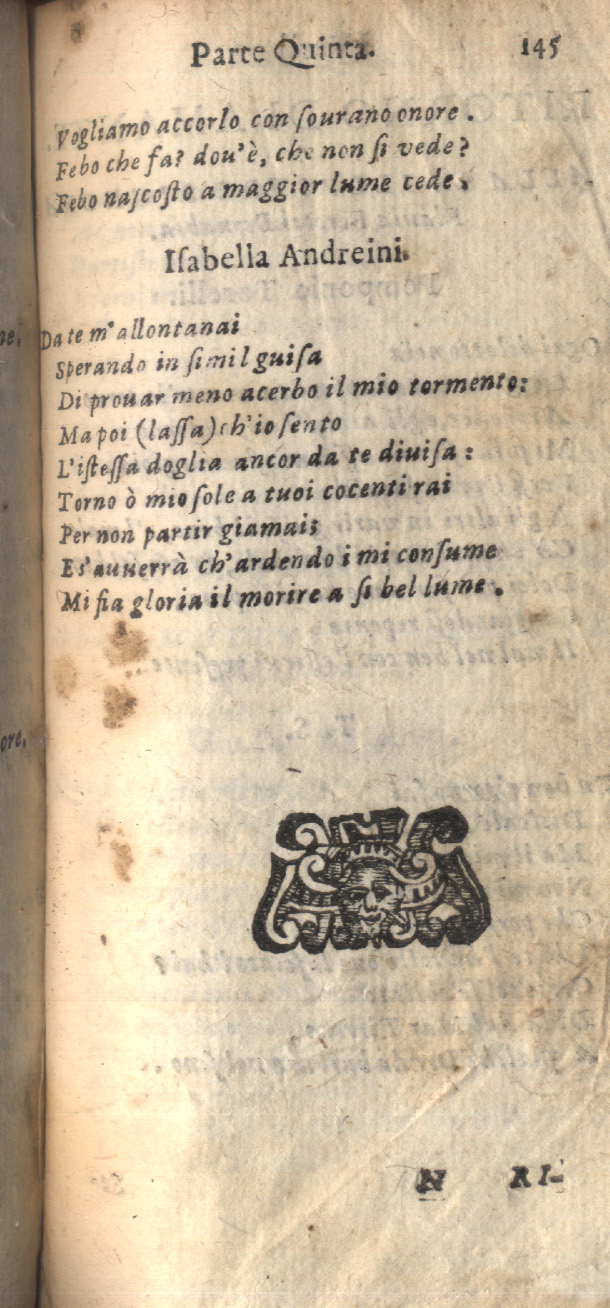 Parte Quinta. 145
Vogliamo accorlo con ſourano onore.
Febo che fa? dou'è, che non ſi vede?
Febo naſcoſto a maggior lume cede.
Iſabella Andreini.
Da te m'allontanai
Sperando in ſimil guiſa
Di prouar meno acerbo il mio tormento:
Ma poi (laſſa) ch'io ſento
L'iſteſſa doglia ancor da te diuiſa:
Torno ò mio ſole a tuoi cocenti rai
Per non partir giamai;
E s'auuerrà ch'ardendo i mi conſume
Mi fia gloria il morire a ſi bel lume.
N RI-